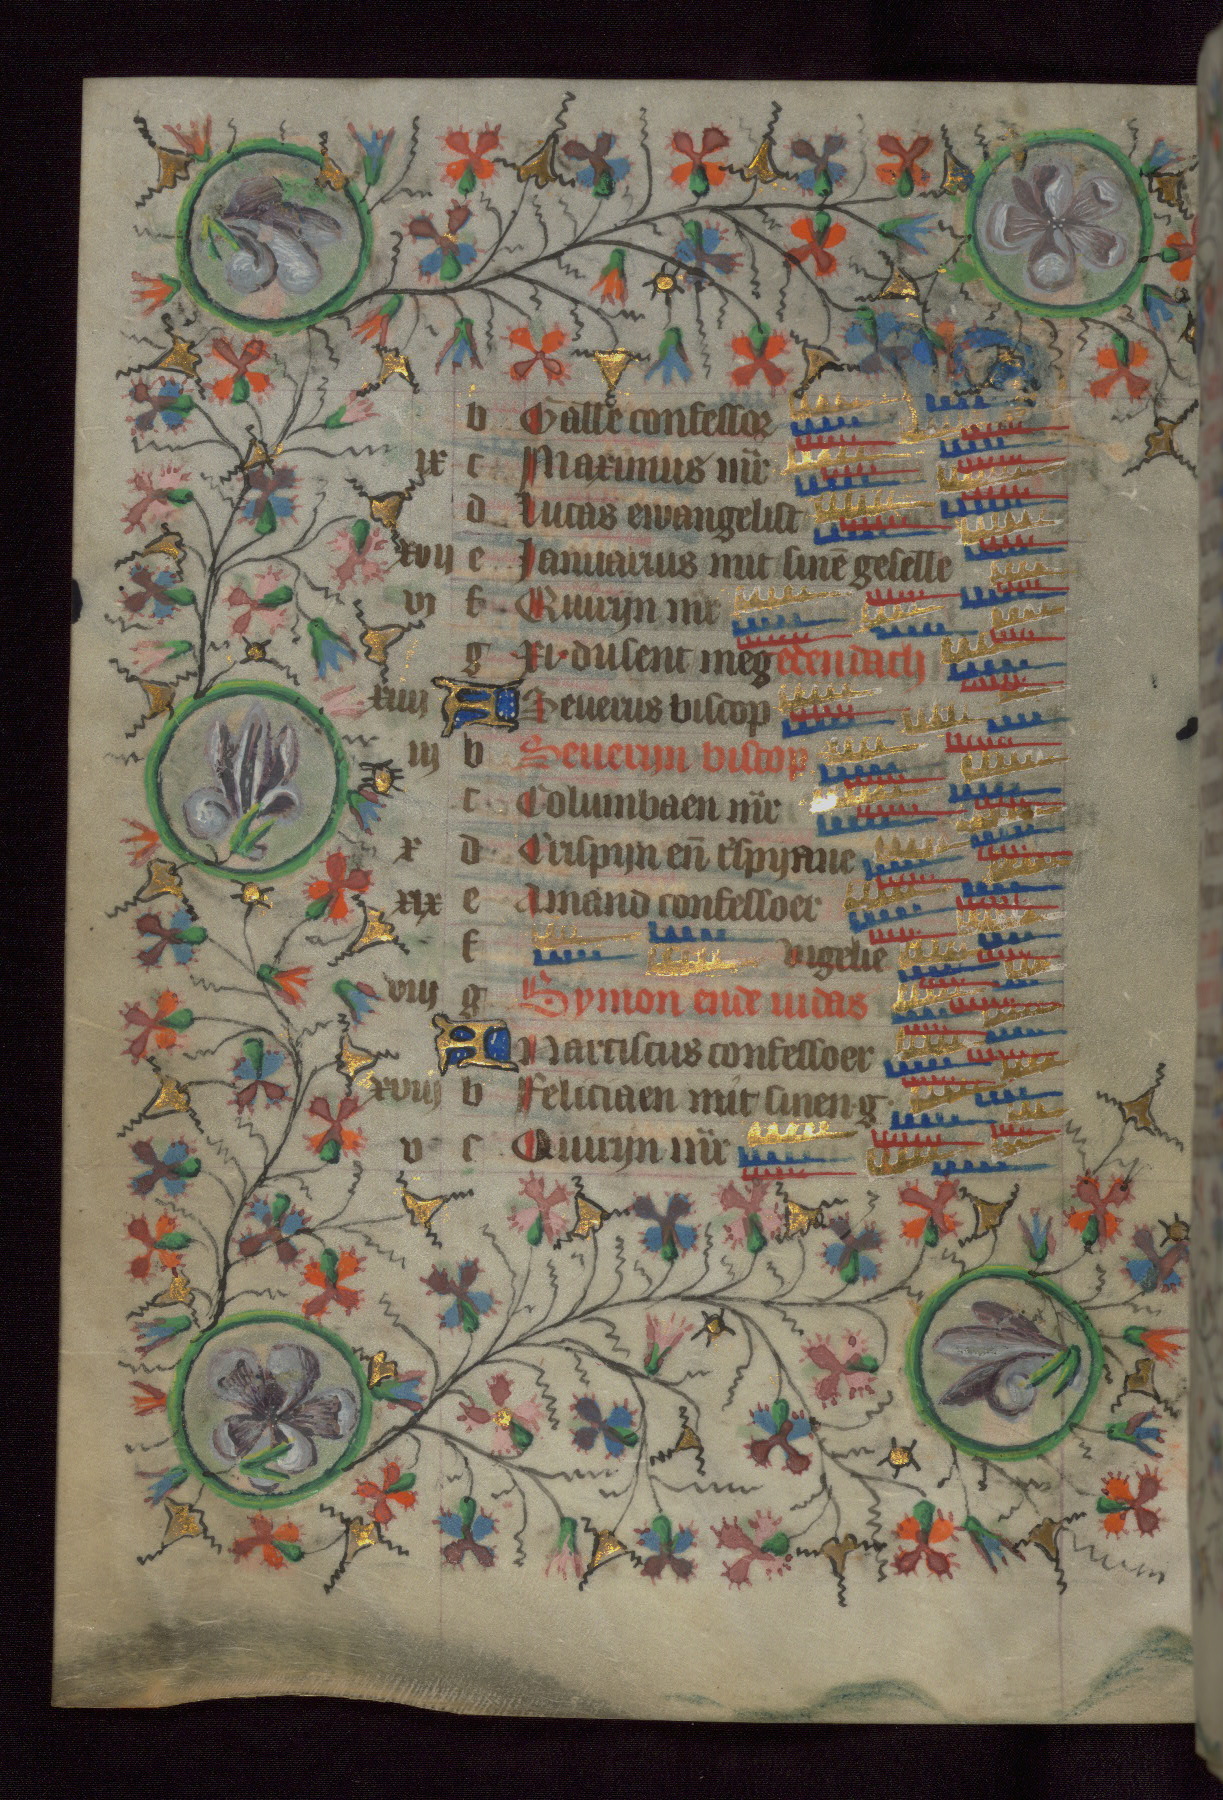 b Galle confessor
ix c Maximus mr̄
d Lucas ewangelist
xvij e Januarius mit sinē geselle
vi f Quirijn mr̄
g xi dusent megedendach
xiiij A Seuerus biscop
iij b Seuerijn biscop
c Columbaen mr̄
x d Crispijn en̄ crispyniane
xix e Amand confessoer
f vigelie
viij g Symon ende iudas
A Narciscus confessoer
xviij b Feliciaen mit sinen g
v c Quirijn mr̄